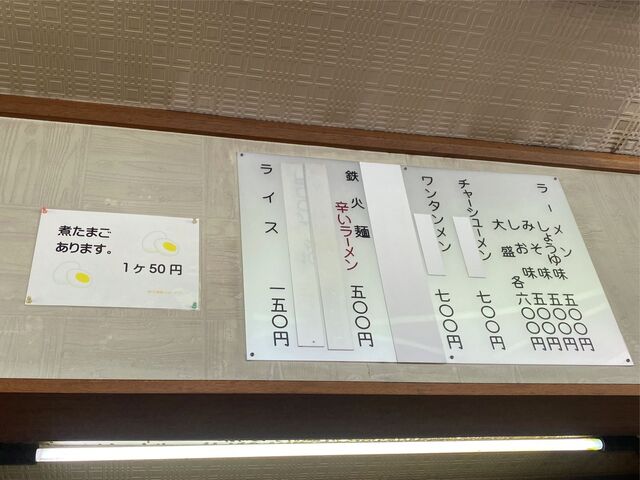 煮たまご
あります。
1ヶ50円
ラーメン
しょうゆ味 五〇〇円
みそ味 五〇〇円
しお味 五〇〇円
大盛 各六〇〇円
チャーシューメン 七〇〇円
ワンタンメン 七〇〇円
鉄火麺 五〇〇円
辛いラーメン
ライス 一五〇円